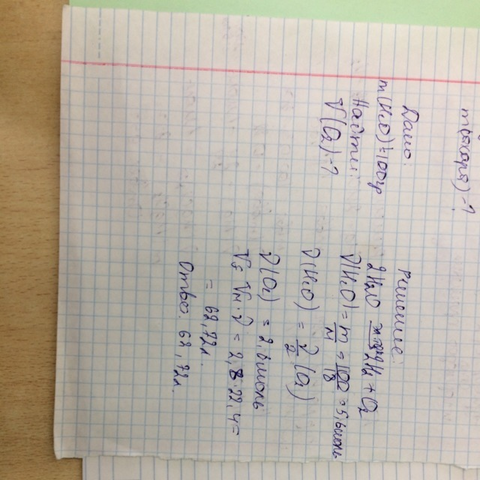 m(сахара)-?
Дано
m(H₂O)=100гр
Найти:
V(O₂)-?
Решение:
2H₂O → 2H₂ + O₂
ν(H₂O) = m/M = 100/18 = 5,6моль
ν(H₂O) = ν/2 (O₂)
ν(O₂) = 2,8моль
V = Vm·ν = 2,8·22,4=
= 62,72л.
Ответ: 62,72л.